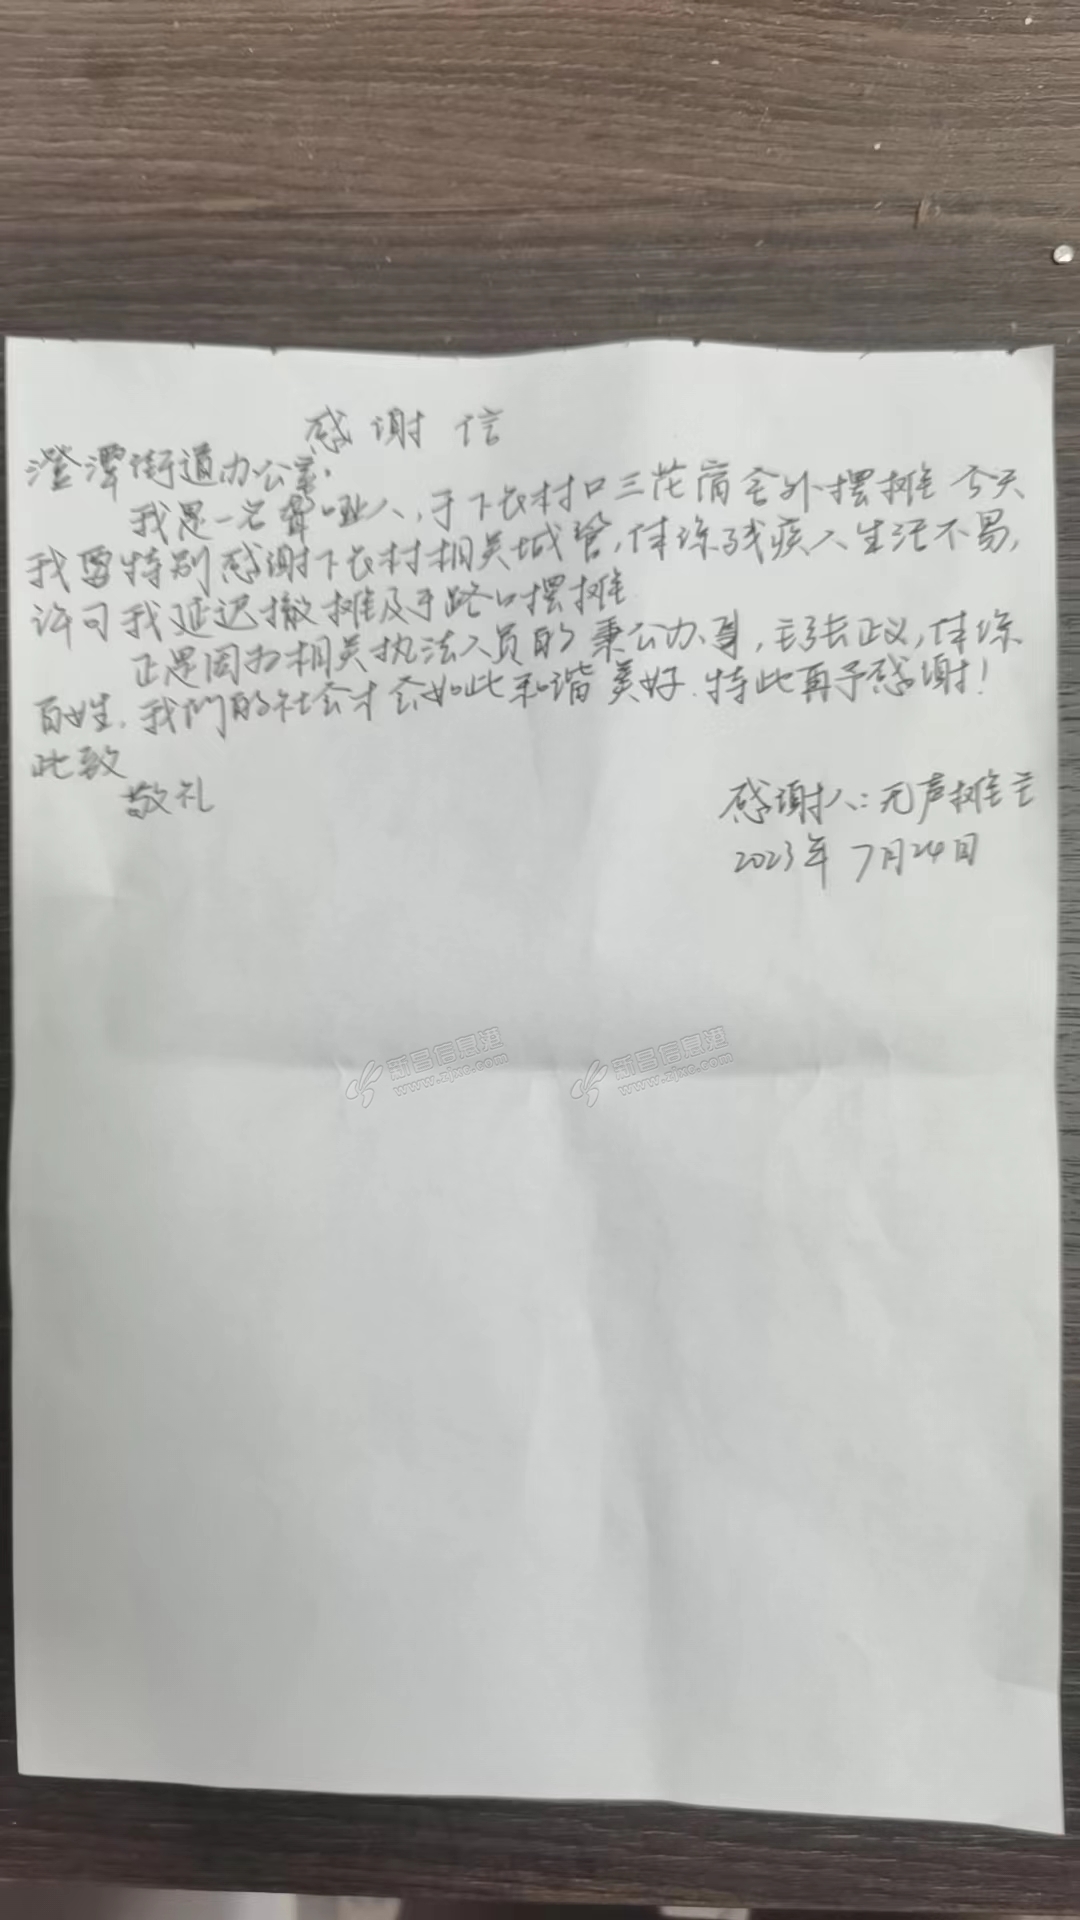 感谢信
澄潭街道办公室.
我是一名聋哑人,于下长村口三花宿舍外摆摊 今天
我要特别感谢下长村相关城管,体谅残疾人生活不易,
许可我延迟撤摊及于路口摆摊
正是因为相关执法人员的秉公办事,主张正义,体谅
百姓.我们的社会才会如此和谐美好.特此再予感谢!
此致
敬礼
感谢人:无声摊主
2023年 7月24日
新昌信息港
www.zjxc.com
新昌信息港
www.zjxc.com